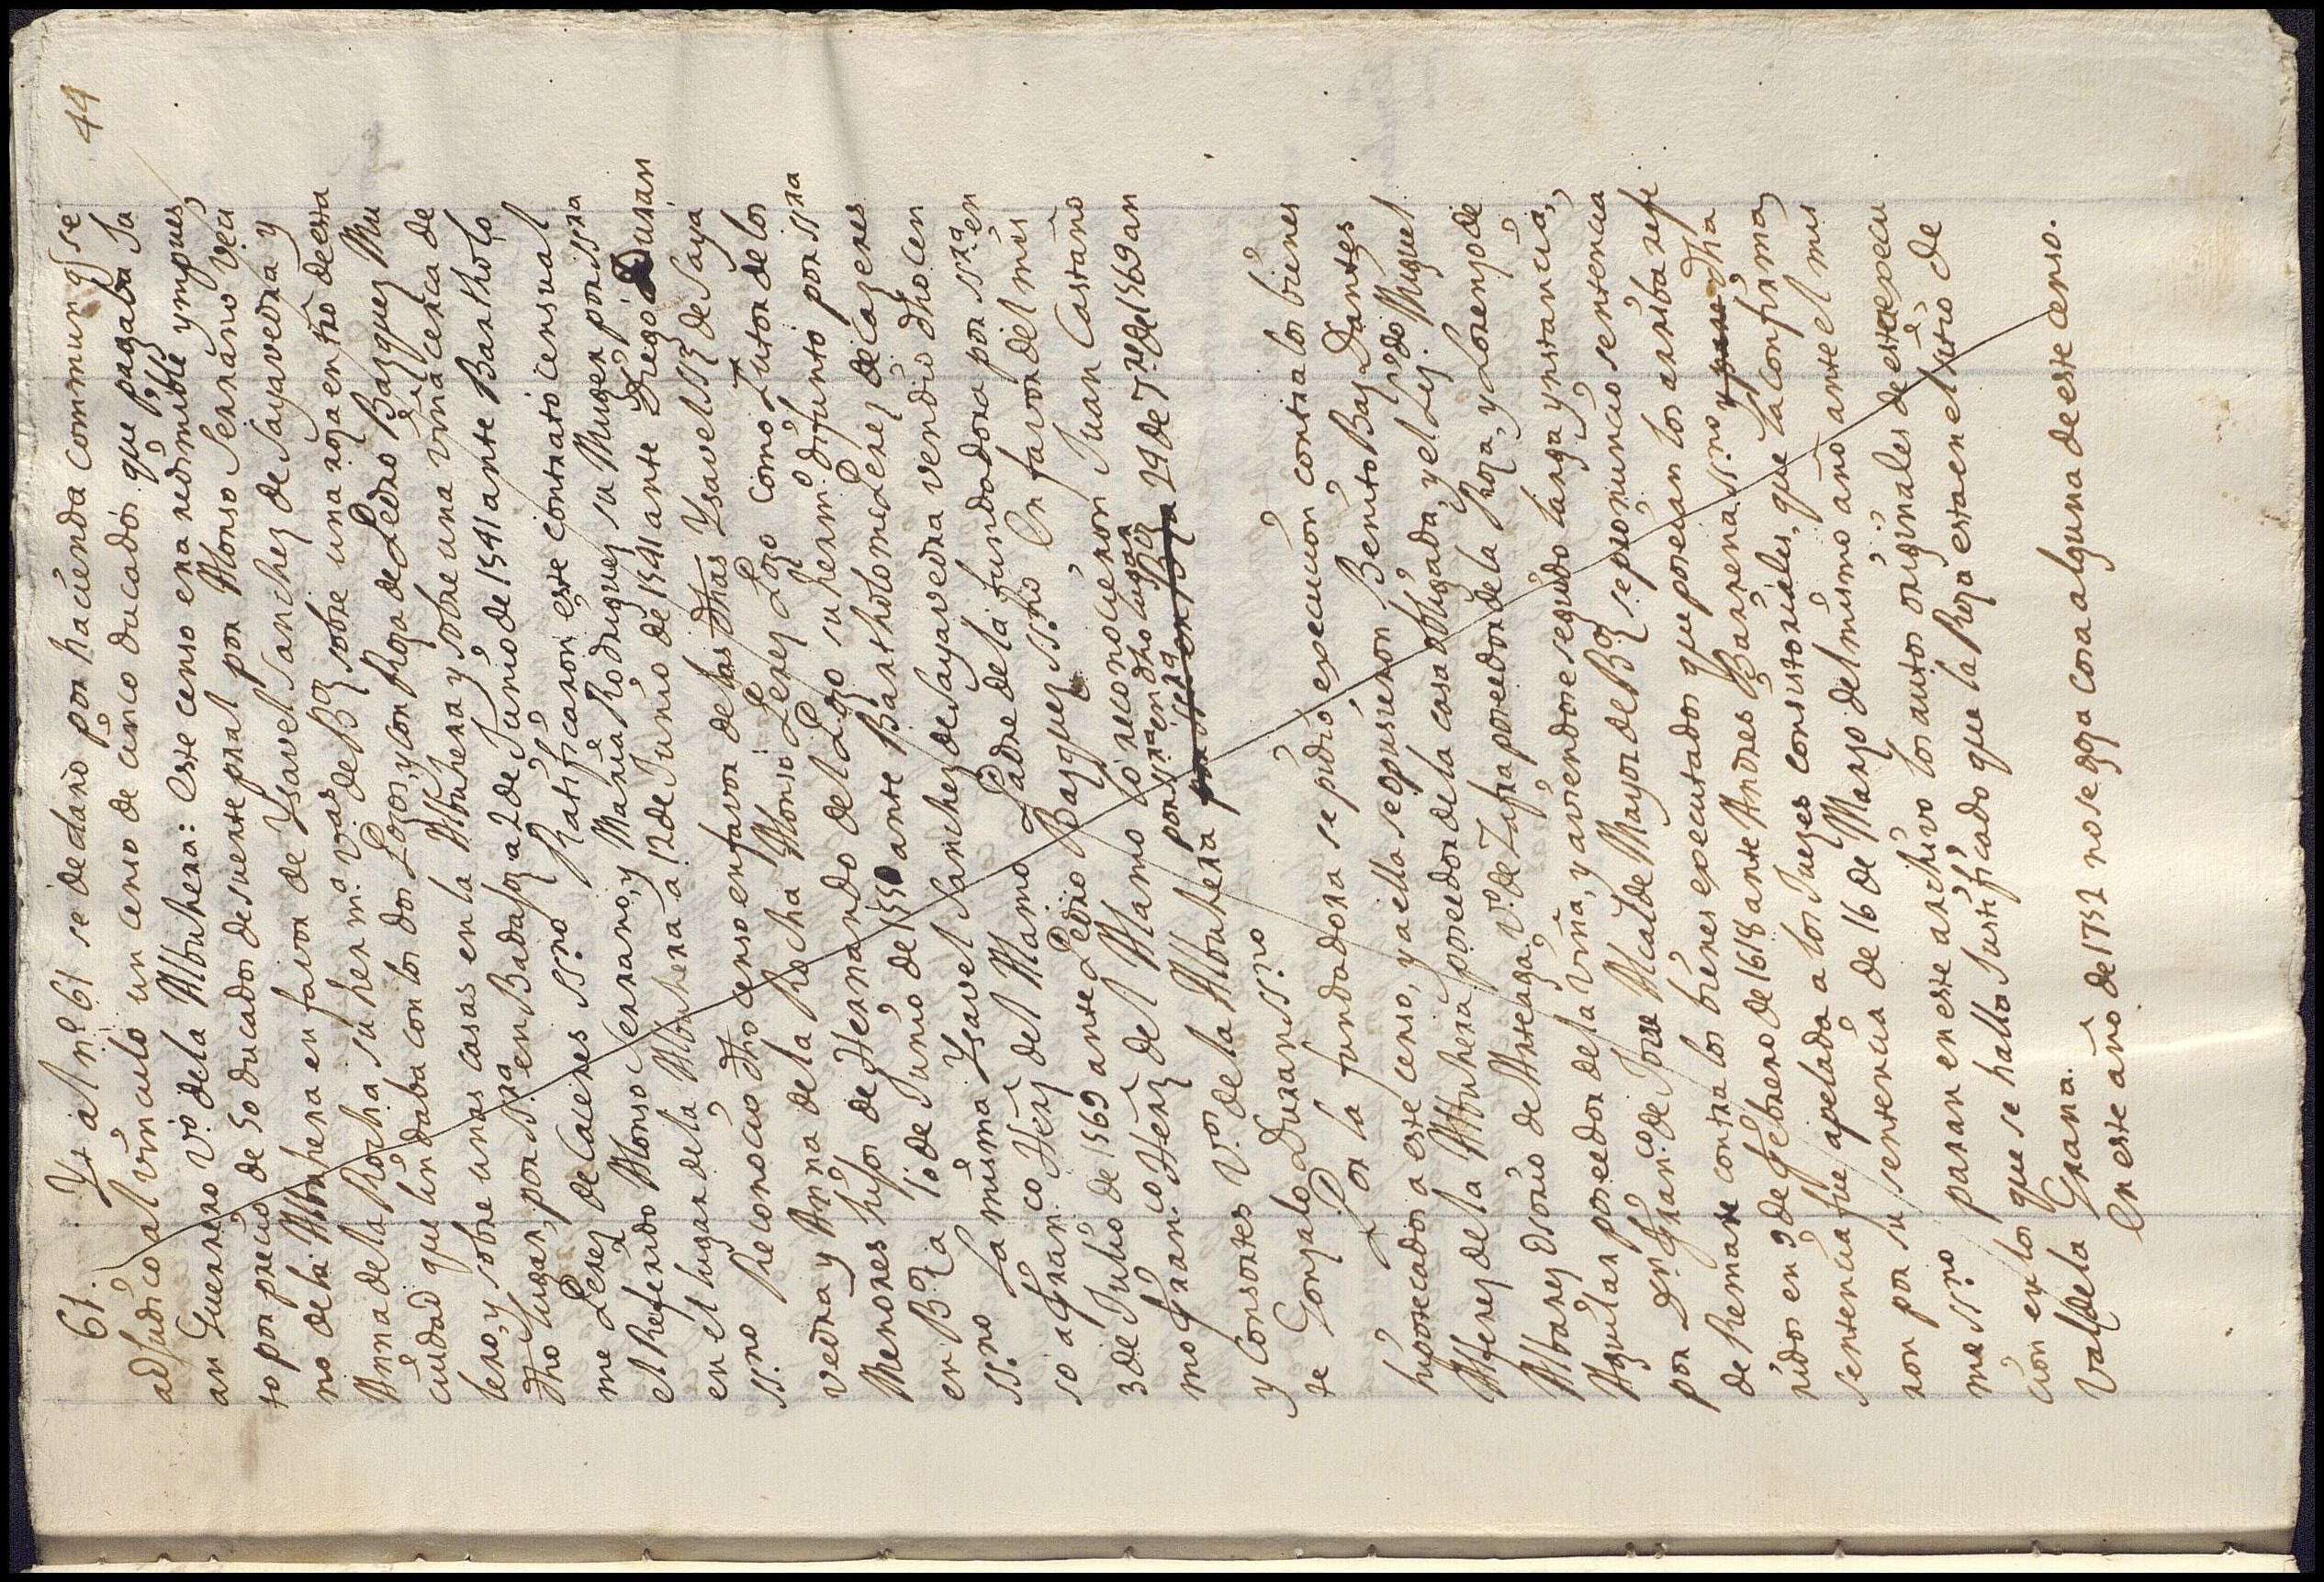 44
61. Yt. al nº 61 se declaro por hacienda commun q̃ se
adjudico al vinculo un censo de cinco ducados que pagaba Ju
an Guerrero Vº de la Albuhera: este censo era redimible ympues
to por precio de 50 ducados de suerte pral por Alonso Serrano Veci
no de la Albuhera en favor de Ysavel Sanchez de Sayavedra y
Anna de la Rocha su herm.ª Vas de Boz sobre una roza entro de esta
ciudad que lindaba con los dos Pozos, y con Roza de Pedro Bazquez Mu
lero, y sobre unas casas en la Albuhera y sobre una viña cerca de
dho lugar, por ssra en Badajoz a 2 de Junio de 1541 ante Bartholo
me Perez de Caceres ssno Ratificaron este contrato censual
el Referido Alonso Serrano, y Maria Rodriguez su Muger por ssra
en el lugar de la Albuhera a 12 de Junio de 1541 ante Diego Duran
ss.no Reconocio dho censo en favor de las dhas Ysavel ssz de Saya
vedra y Anna de la Rocha Alonso Perez Pozo como Tutor de los
Menores hijos de Hernando del Pozo su hermº difunto por ssra
en Boz a 10 de Junio de 1550 ante Bartholome Perez de Cazeres
ssno La misma Ysavel Sanchez de Sayavedra vendio dho cen
so a Fran.co Hernz del Alamo Padre de la fundadora por ssra en
3 de Julio de 1569 ante Pedro Bazquez ssno En favor del mis
mo Fran.co Hernz del Alamo lo reconocieron Juan Castaño
y Consortes V.os de la Albuhera por ssra en dho lugar a 29 de 7.re de 1569 an
te Gonzalo Duran ss.no
Por la fundadora se pidio execucion contra los bienes
hipotecados a este censo, y a ella se opusieron Benito Baz Dantes
Alferez de la Albuhera poseedor de la casa obligada, y el Lizdo Miguel
Albarez Osorio de Arteaga Vº de Zafra poseedor de la Roza, y Lorenzo de
Aguilar poseedor de la viña, y aviendose seguido larga ynstancia,
por Dn Fran.co de Joue Alcalde Mayor de Boz se pronuncio sentencia
de Remate contra los bienes executados que poseian los arriba refe
ridos en 9 de Febrero de 1618 ante Andres Barrena ss.no y dha
sentencia fue apelada a los Juezes consistoriales, que la confirma
ron por su sentencia de 16 de Marzo del mismo año ante el mis
me ssno paran en este archivo los autos originales de esta execu
cion en los que se halla Justificado que la Roza esta en el sitio de
Val de la Grana.
En este año de 1752 no se goza cosa alguna de este censo.